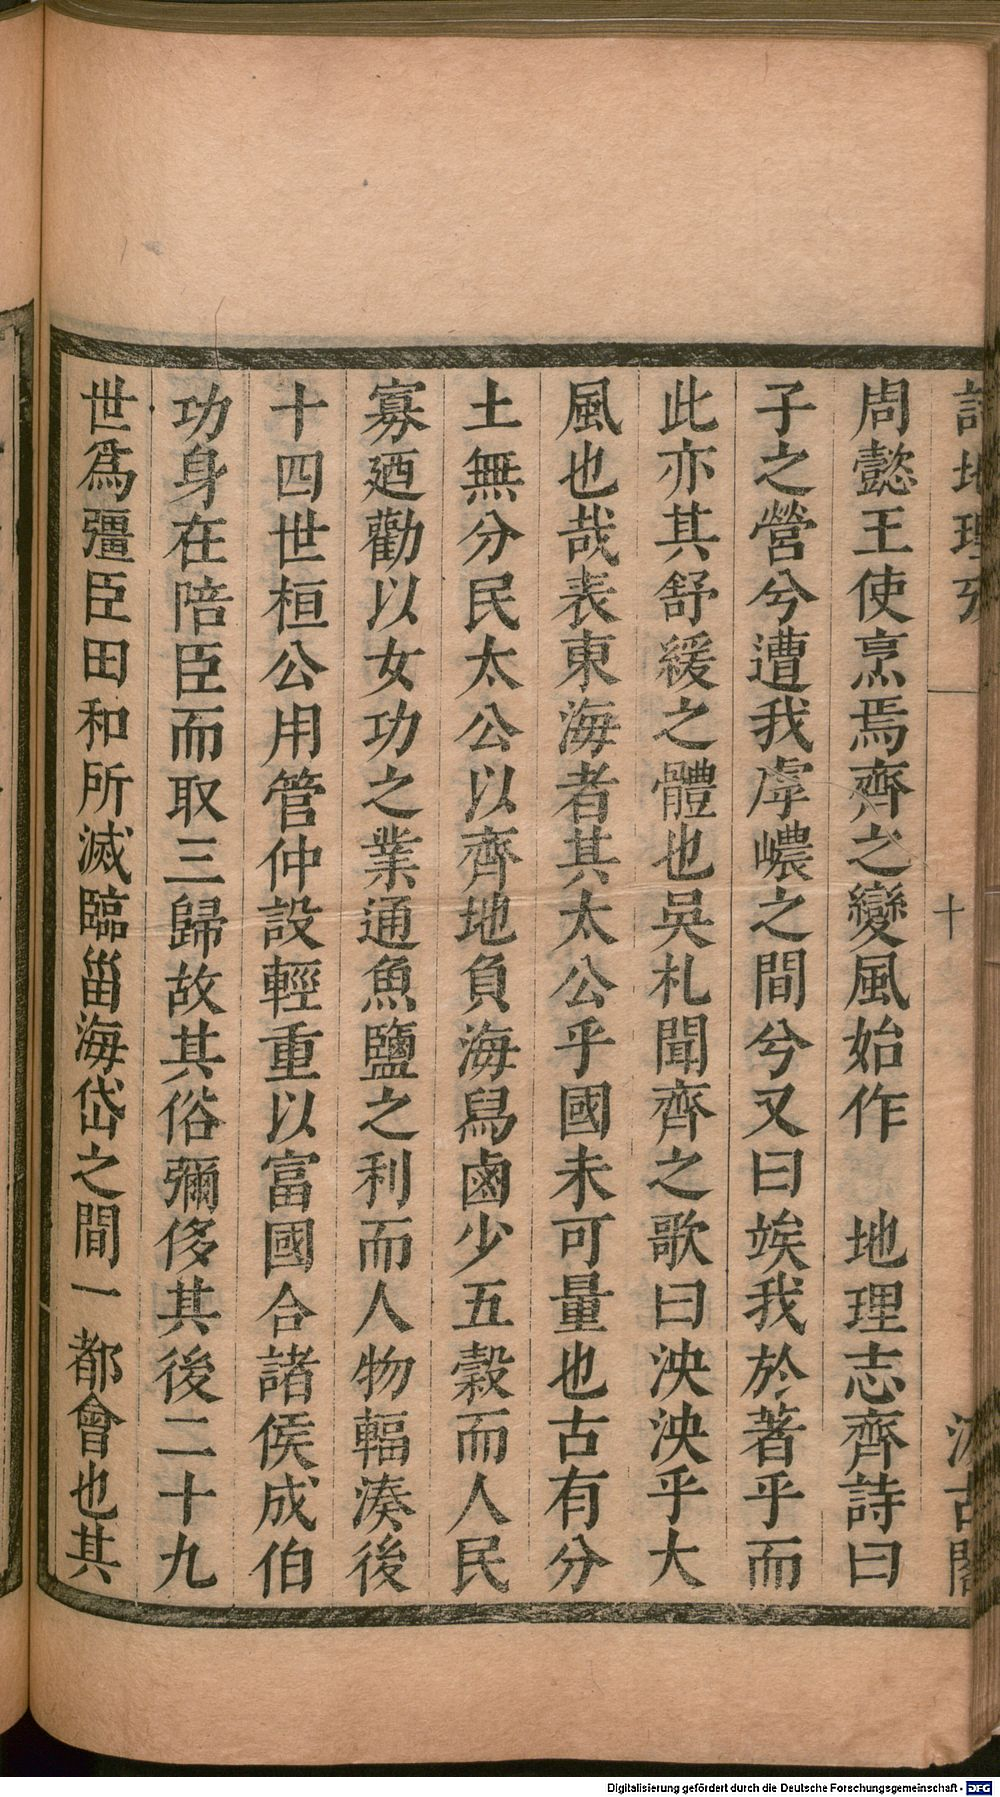 詩地理攷
十
汲古閣
周懿王使烹焉齊之變風始作　地理志齊詩曰
子之營兮遭我虖嶩之間兮又曰竢我於著乎而
此亦其舒緩之體也吳札聞齊之歌曰泱泱乎大
風也哉表東海者其太公乎國未可量也古有分
土無分民太公以齊地負海舄鹵少五穀而人民
寡廼勸以女功之業通魚鹽之利而人物輻湊後
十四世桓公用管仲設輕重以富國合諸侯成伯
功身在陪臣而取三歸故其俗彌侈其後二十九
世爲彊臣田和所滅臨甾海岱之間一都會也其
Digitalisierung gefördert durch die Deutsche Forschungsgemeinschaft - DFG